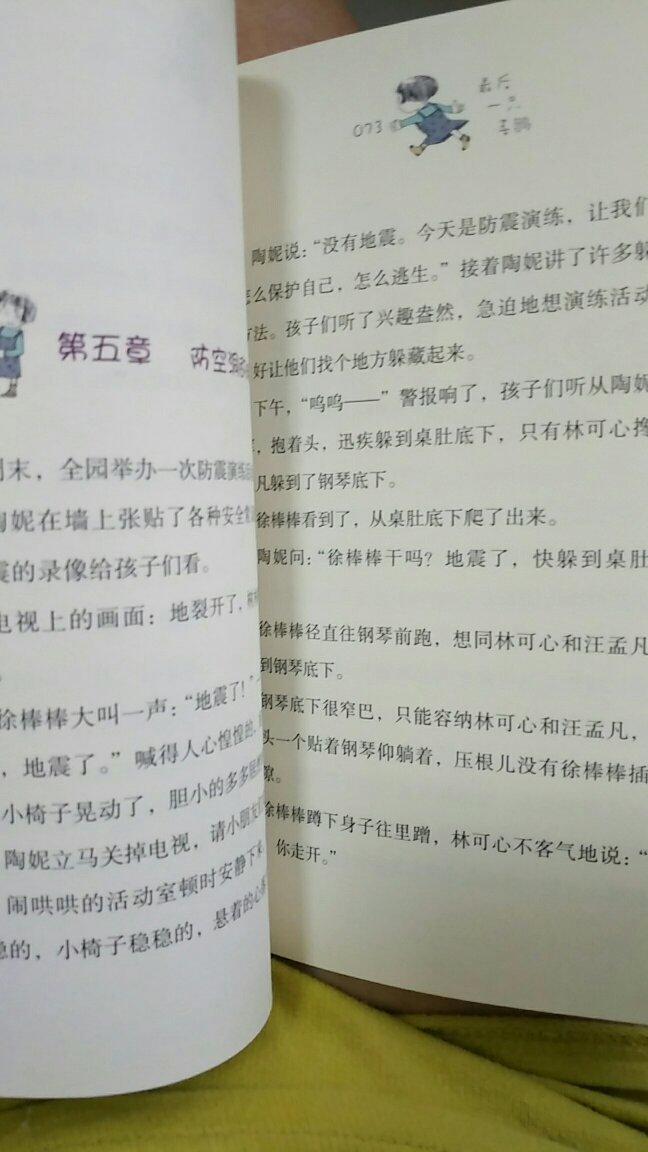 第五章 防空
末，全园举办一次防震演练
陶妮在墙上张贴了各种安全
震的录像给孩子们看。
电视上的画面：地裂开了，
徐棒棒大叫一声：“地震了！”
，地震了。”喊得人心惶惶的
小椅子晃动了，胆小的多多
陶妮立马关掉电视，请小朋友
闹哄哄的活动室顿时安静下来
稳的，小椅子稳稳的，悬着的心
073
最后
一
陶妮说：“没有地震。今天是防震演练，让我们
怎么保护自己，怎么逃生。”接着陶妮讲了许多躲
方法。孩子们听了兴趣盎然，急迫地想演练活动
好让他们找个地方躲藏起来。
下午，“呜呜——”警报响了，孩子们听从陶妮
，抱着头，迅疾躲到桌肚底下，只有林可心搀
凡躲到了钢琴底下。
徐棒棒看到了，从桌肚底下爬了出来。
陶妮问：“徐棒棒干吗？地震了，快躲到桌肚
徐棒棒径直往钢琴前跑，想同林可心和汪孟凡
到钢琴底下。
钢琴底下很窄巴，只能容纳林可心和汪孟凡，
头一个贴着钢琴仰躺着，压根儿没有徐棒棒插
隙。
徐棒棒蹲下身子往里蹭，林可心不客气地说：“
你走开。”